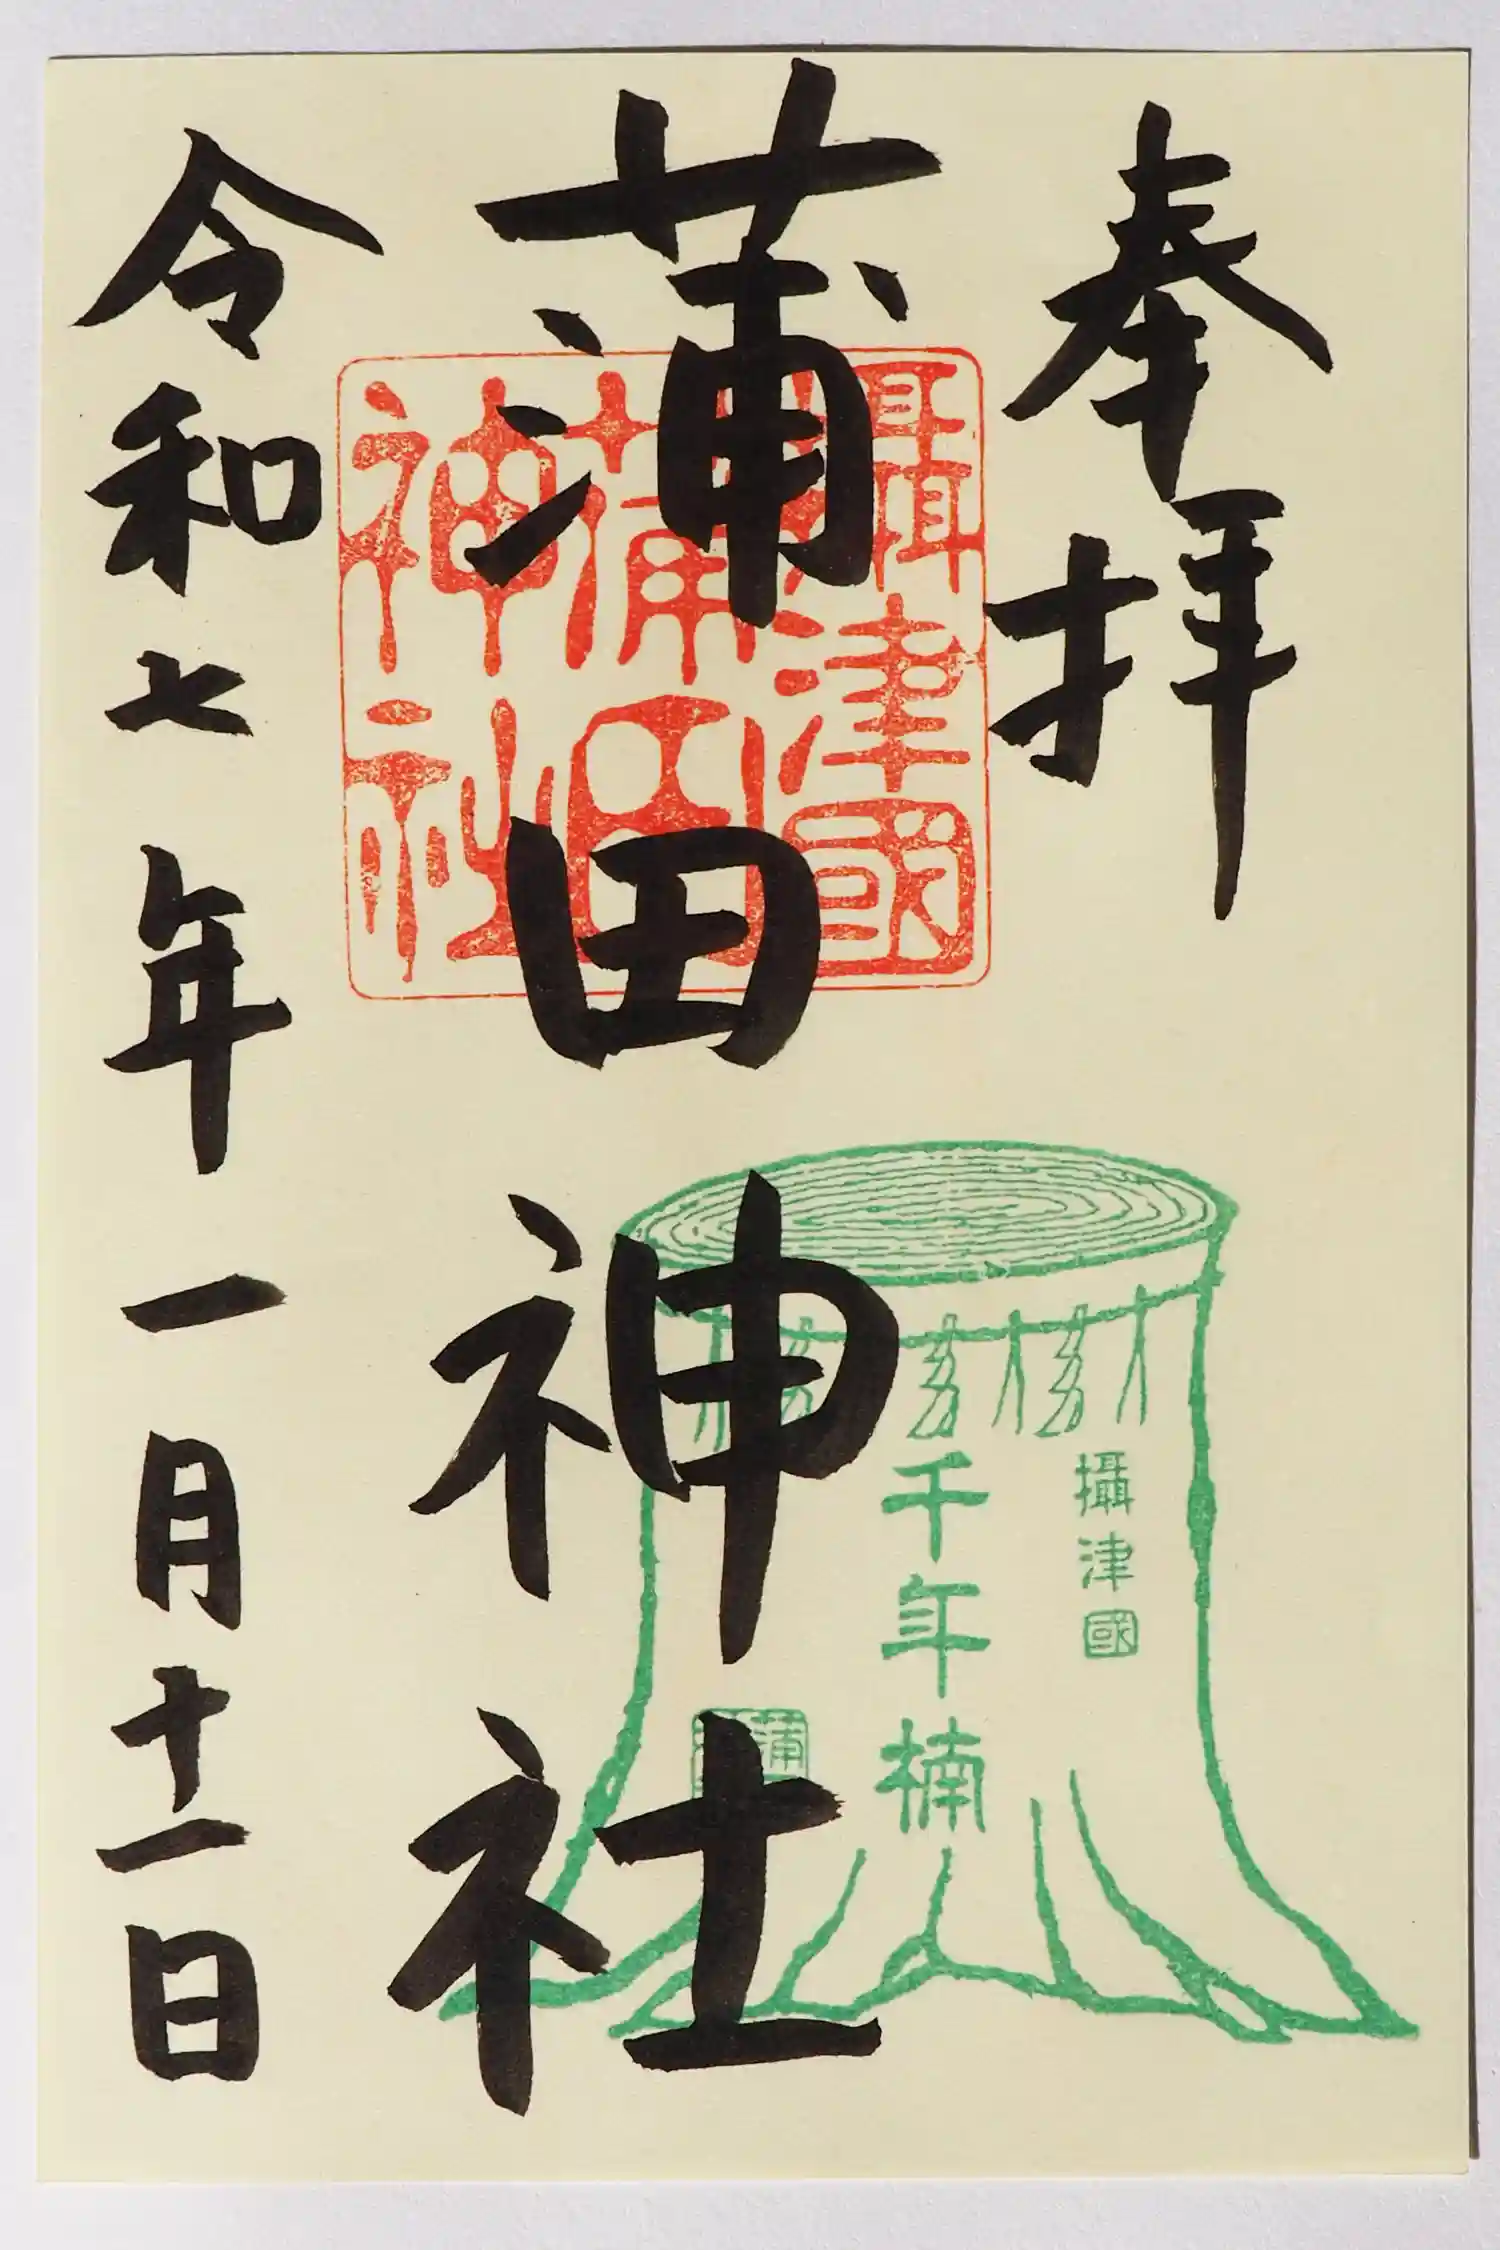 奉拝
蒲田神社
令和七年一月十一日
攝津國
蒲田
神社
攝津國
千年楠
蒲